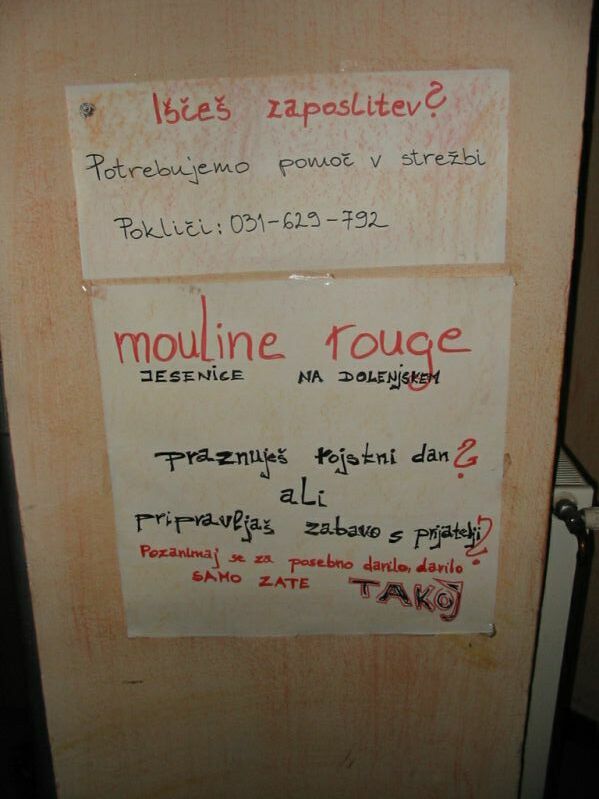 Iščeš zaposlitev?
Potrebujemo pomoč v strežbi
Pokliči: 031-629-792
mouline rouge
JESENICE NA DOLENJSKEM
praznuješ rojstni dan?
ali
pripravljaš zabavo s prijatelji?
Pozanimaj se za posebno darilo, darilo
SAMO ZATE TAKOJ